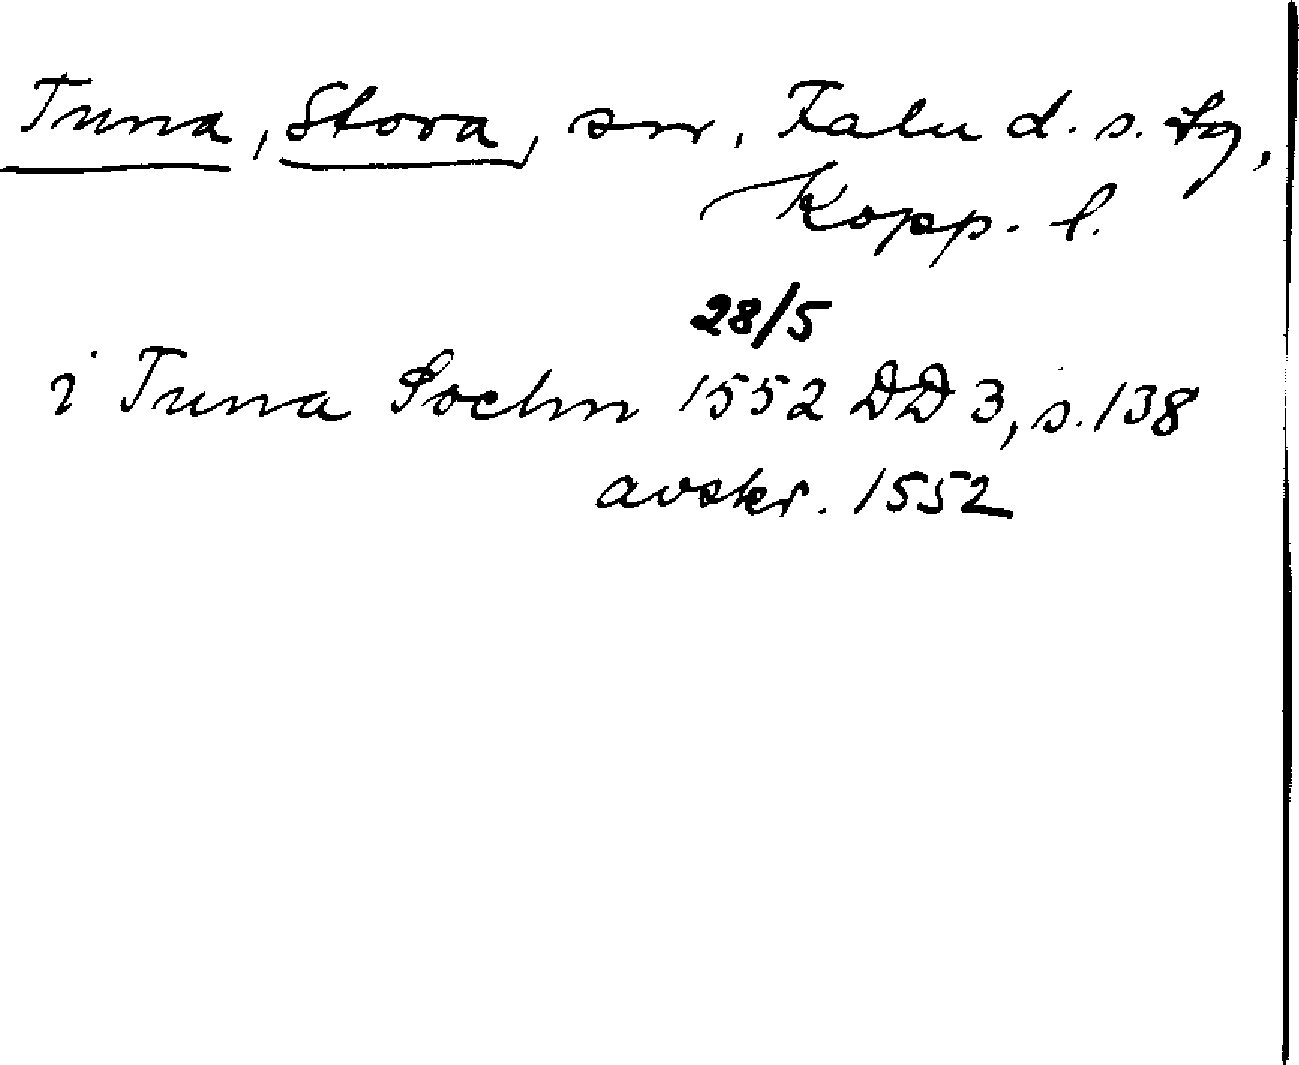 Tuna, Stora, sn, Falu d. s. tg,
Kopp. l.
28/5
i Tuna Sochn 1552 DD 3, s. 138
avskr. 1552